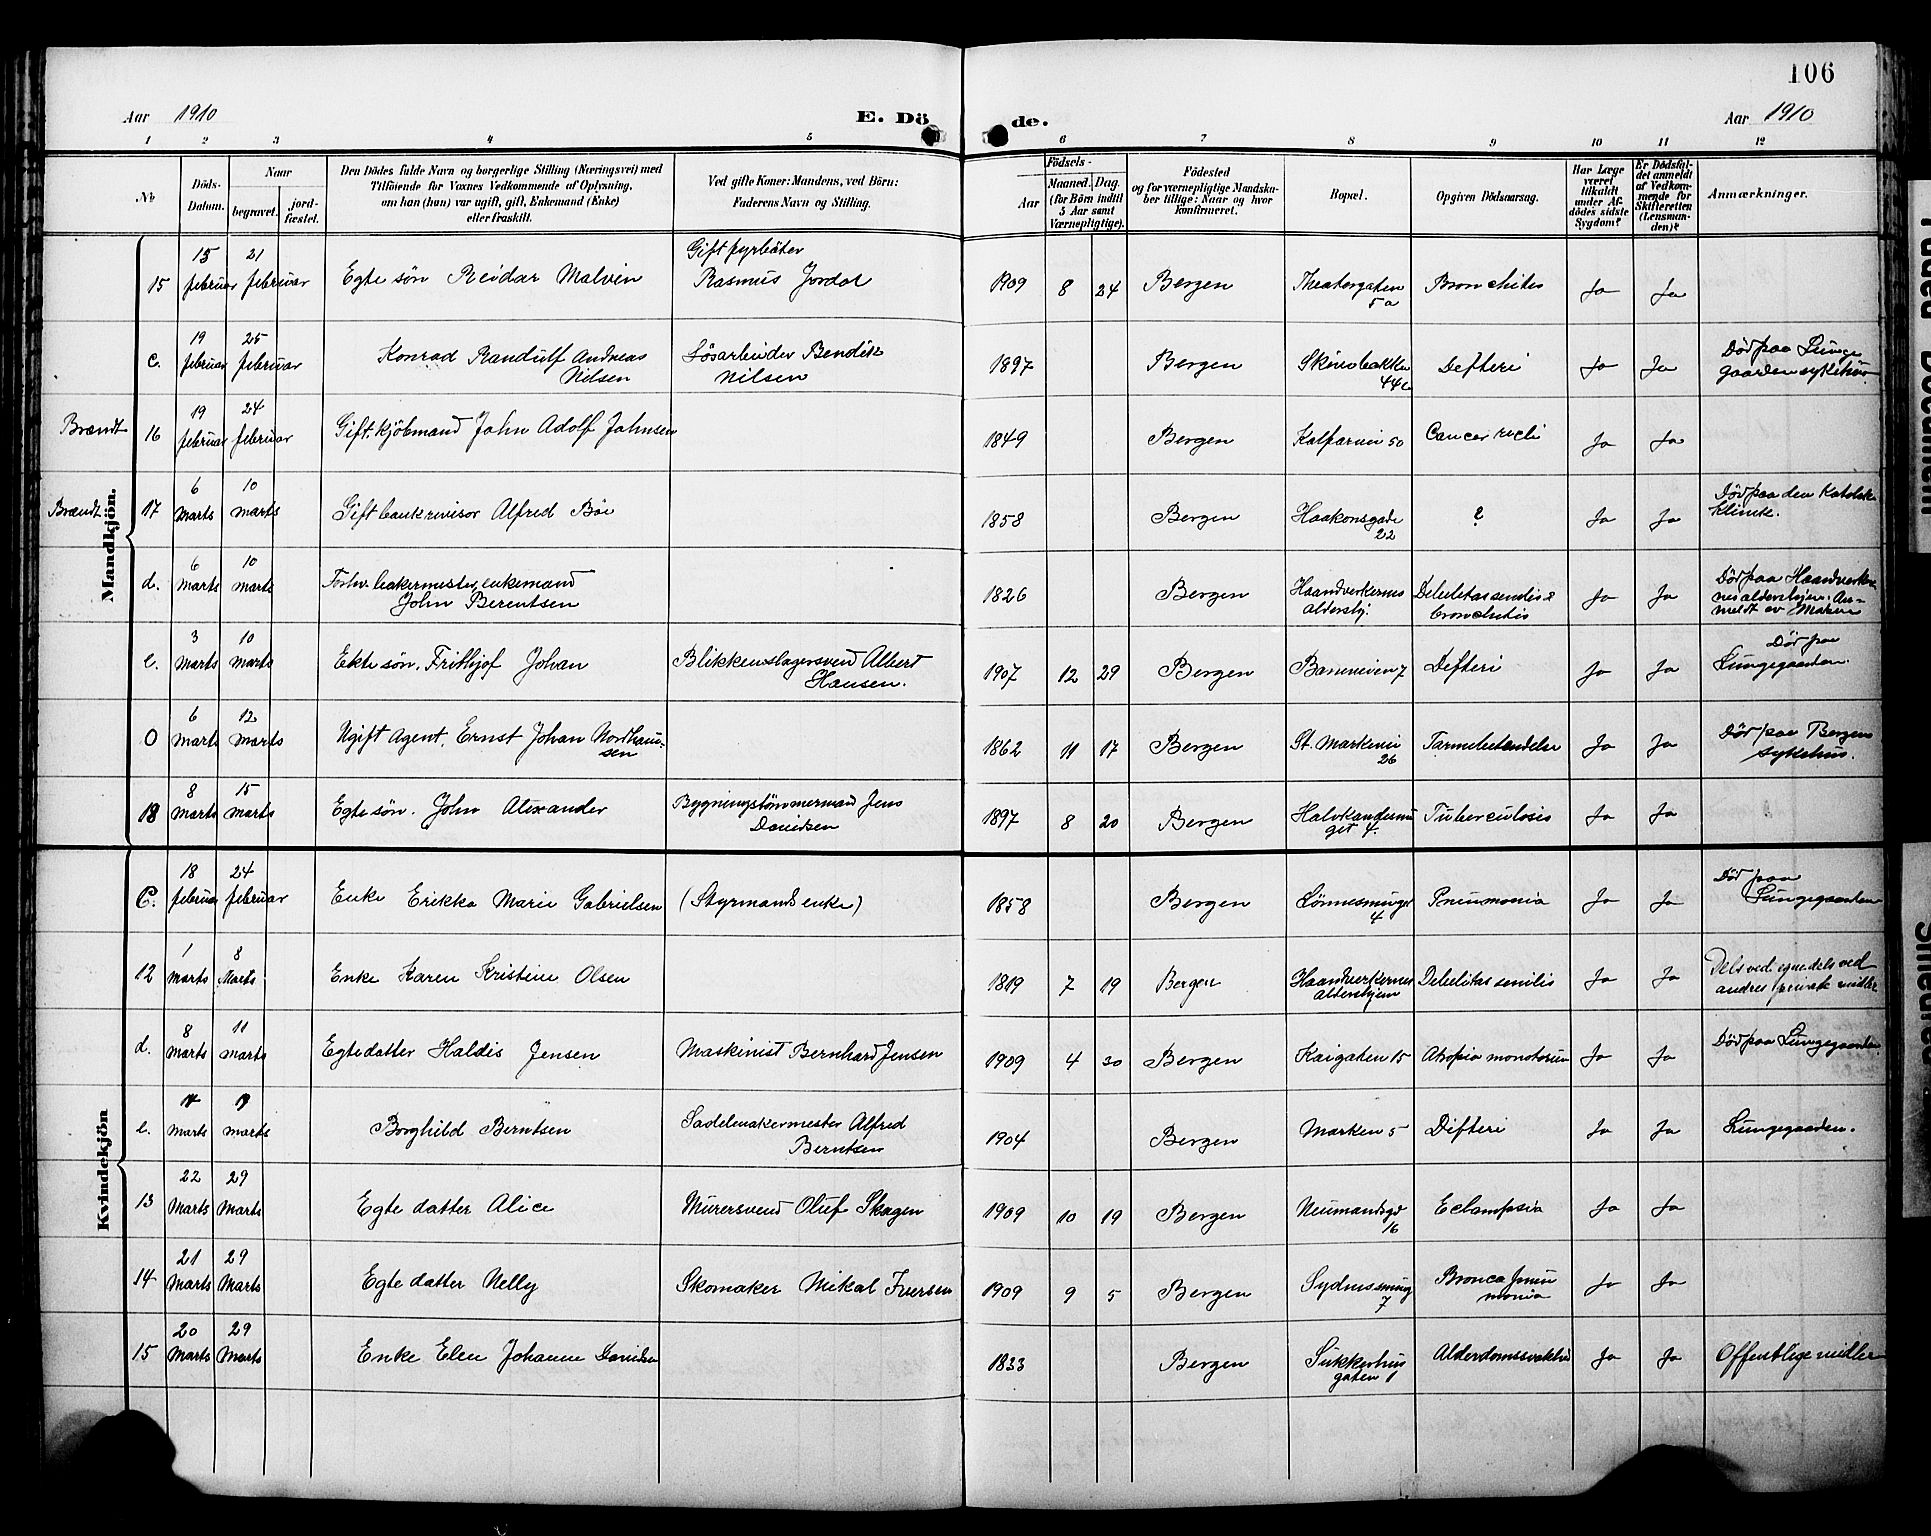 106
Aar 1910
E. Dö
de.
Aar 1910
1 2 3 4 5 6 7 8 9 10 11 12
No
Döds-Datum.
Naar
begravet.
jord-fæstet.
Den Dödes fulde Navn og borgerlige Stilling (Næringsvei) med
Tilföiende for Voxnes Vedkommende af Oplysning,
om han (hun) var ugift, gift, Enkemand (Enke)
eller fraskilt.
Ved gifte Koner: Mandens, ved Börn:
Faderens Navn og Stilling.
Födsels-
Aar
Maaned. Dag.
(for Börn indtil
5 Aar samt
Værnepligtige).
Födested
og for værnepligtige Mandska-
ber tillige: Naar og hvor
konfirmeret.
Bopæl.
Opgiven Dödsaarsag.
Har Læge
været
tilkaldt
under Af-
dödes sidste
Sygdom?
Er Dödsfal-
det anmeldt
af Vedkom-
mende for
Skifteretten
(Lensman-
den)?
Anmærkninger.
Mandkjön.
15 15 februar 21 februar Egte søn Reidar Malvin Gift fyrbøter
Rasmus Jordal 1909 8 24 Bergen Theatergaten
5a Bronchitis Ja Ja
c. 19 februar 25 februar Konrad Randulf Andreas
Nilsen Løsarbeider Bendik
Nilsen 1897 Bergen Skivebakken
44c Defteri Ja Ja Død paa Lunge
gaarden sykehus
Brændt 16 19 februar 24 februar Gift. kjøbmand John Adolf Johnsen 1849 Bergen Kalfarvei 50 Cancer recti Ja Ja
Brændt 17 6 Marts 10 marts Gift bankrevisor Alfred Bøe 1858 Bergen Haakonsgade
22 ? Ja Ja Død paa den Katolske
Klinik.
d. 6 Marts 10 marts Forhv. bakermester, enkemand
John Berentsen 1826 Bergen Haandverkernes
aldershj. Debilitas senilis &
bronchitis Ja Ja Død paa Haandverker
nes aldershjem. An-
meldt av
e. 3 Marts 10 Marts Ekte søn. Frithjof Johan Blikkenslagersvend Albert
Hansen. 1907 12 29 Bergen 7 Defteri Ja Ja Død paa
Lungegaarden.
O 6 Marts 12 Marts Ugift Agent, Ernst Johan Nordhau-
sen 1862 11 17 Bergen St. Markevei
26 Tarmbetændelse Ja Ja Død paa Bergens
sykehus.
18 8 Marts 15 marts Egte søn. John Alexander Bygningstømmermand Jens
Davidsen 1897 8 20 Bergen Halvkandesmu
get 4. Tuberculosis Ja Ja
Kvindekjön
C. 18 februar 24 februar Enke Erikka Marie Gabrielsen (Styrmands enke) 1858 Bergen Lønnesmuget
4 Pneumonia Ja Ja Død paa
Lungegaarden
12 1 Marts 8 Marts Enke Karen Kristine Olsen 1819 7 19 Bergen Haandverkernes
Aldershjem Debilitas senilis Ja Ja Dels ved egne dels ved
andres private midler
d. 8 Marts 11 marts Egte datter Haldis Jensen Maskinist Bernhard Jensen 1909 4 30 Bergen Kaigaten 15 Ja Ja Død paa Lungegaarden.
e. 14 Marts 19 marts Borghild Berntsen Sadelmakermester Alfred
Berntsen 1904 Bergen Marken 5 Difteri Ja Ja Lungegaarden.
13 22 Marts 29 Marts Egte datter Alice Murersvend Oluf Skagen 1909 10 19 Bergen Neumandsgd
16 Eclampsia Ja Ja
14 21 Marts 29 Marts Egte datter Nelly Skomaker Mikal Iversen 1909 9 5 Bergen Sydnessmug
7 Bronco pneu
monia Ja Ja
15 20 Marts 29 Marts Enke Elen Johanne Davidsen 1833 Bergen Sukkerhus
gaten 1 Alderdomssvakhed Ja Ja Offentlige midler